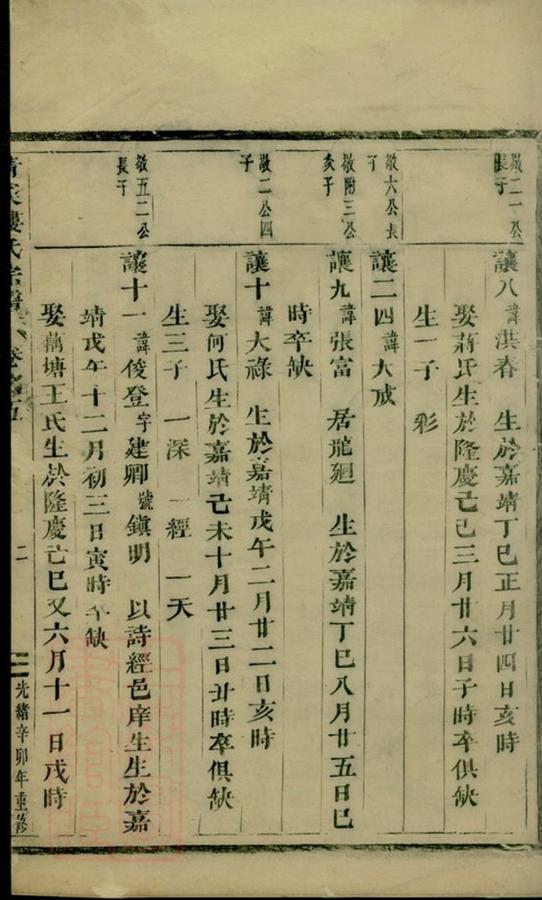 敬二一公
長子
讓八諱洪春　生於嘉靖丁巳正月廿四日亥時
娶蔣氏生於隆慶己巳三月廿六日子時卒俱缺
生一子　彩
敬六公長
子
讓二四諱大戒
敬附三公
亥子
讓九諱張富　居龍廻　生於嘉靖丁巳八月廿五日巳
時卒缺
敬二公四
子
讓十諱大祿　生於嘉靖戊午二月廿二日亥時
娶何氏生於嘉靖己未十月廿三日丑時卒俱缺
生三子　一深　一經　一天
敬五二公
長子
讓十一諱俊登字建卿號鎮明　以詩經邑庠生生於嘉
靖戊午十二月初三日寅時卒缺
娶藕塘王氏生於隆慶己巳又六月十一日戌時
婁氏宗譜　卷之五
二
光緒辛卯年重修